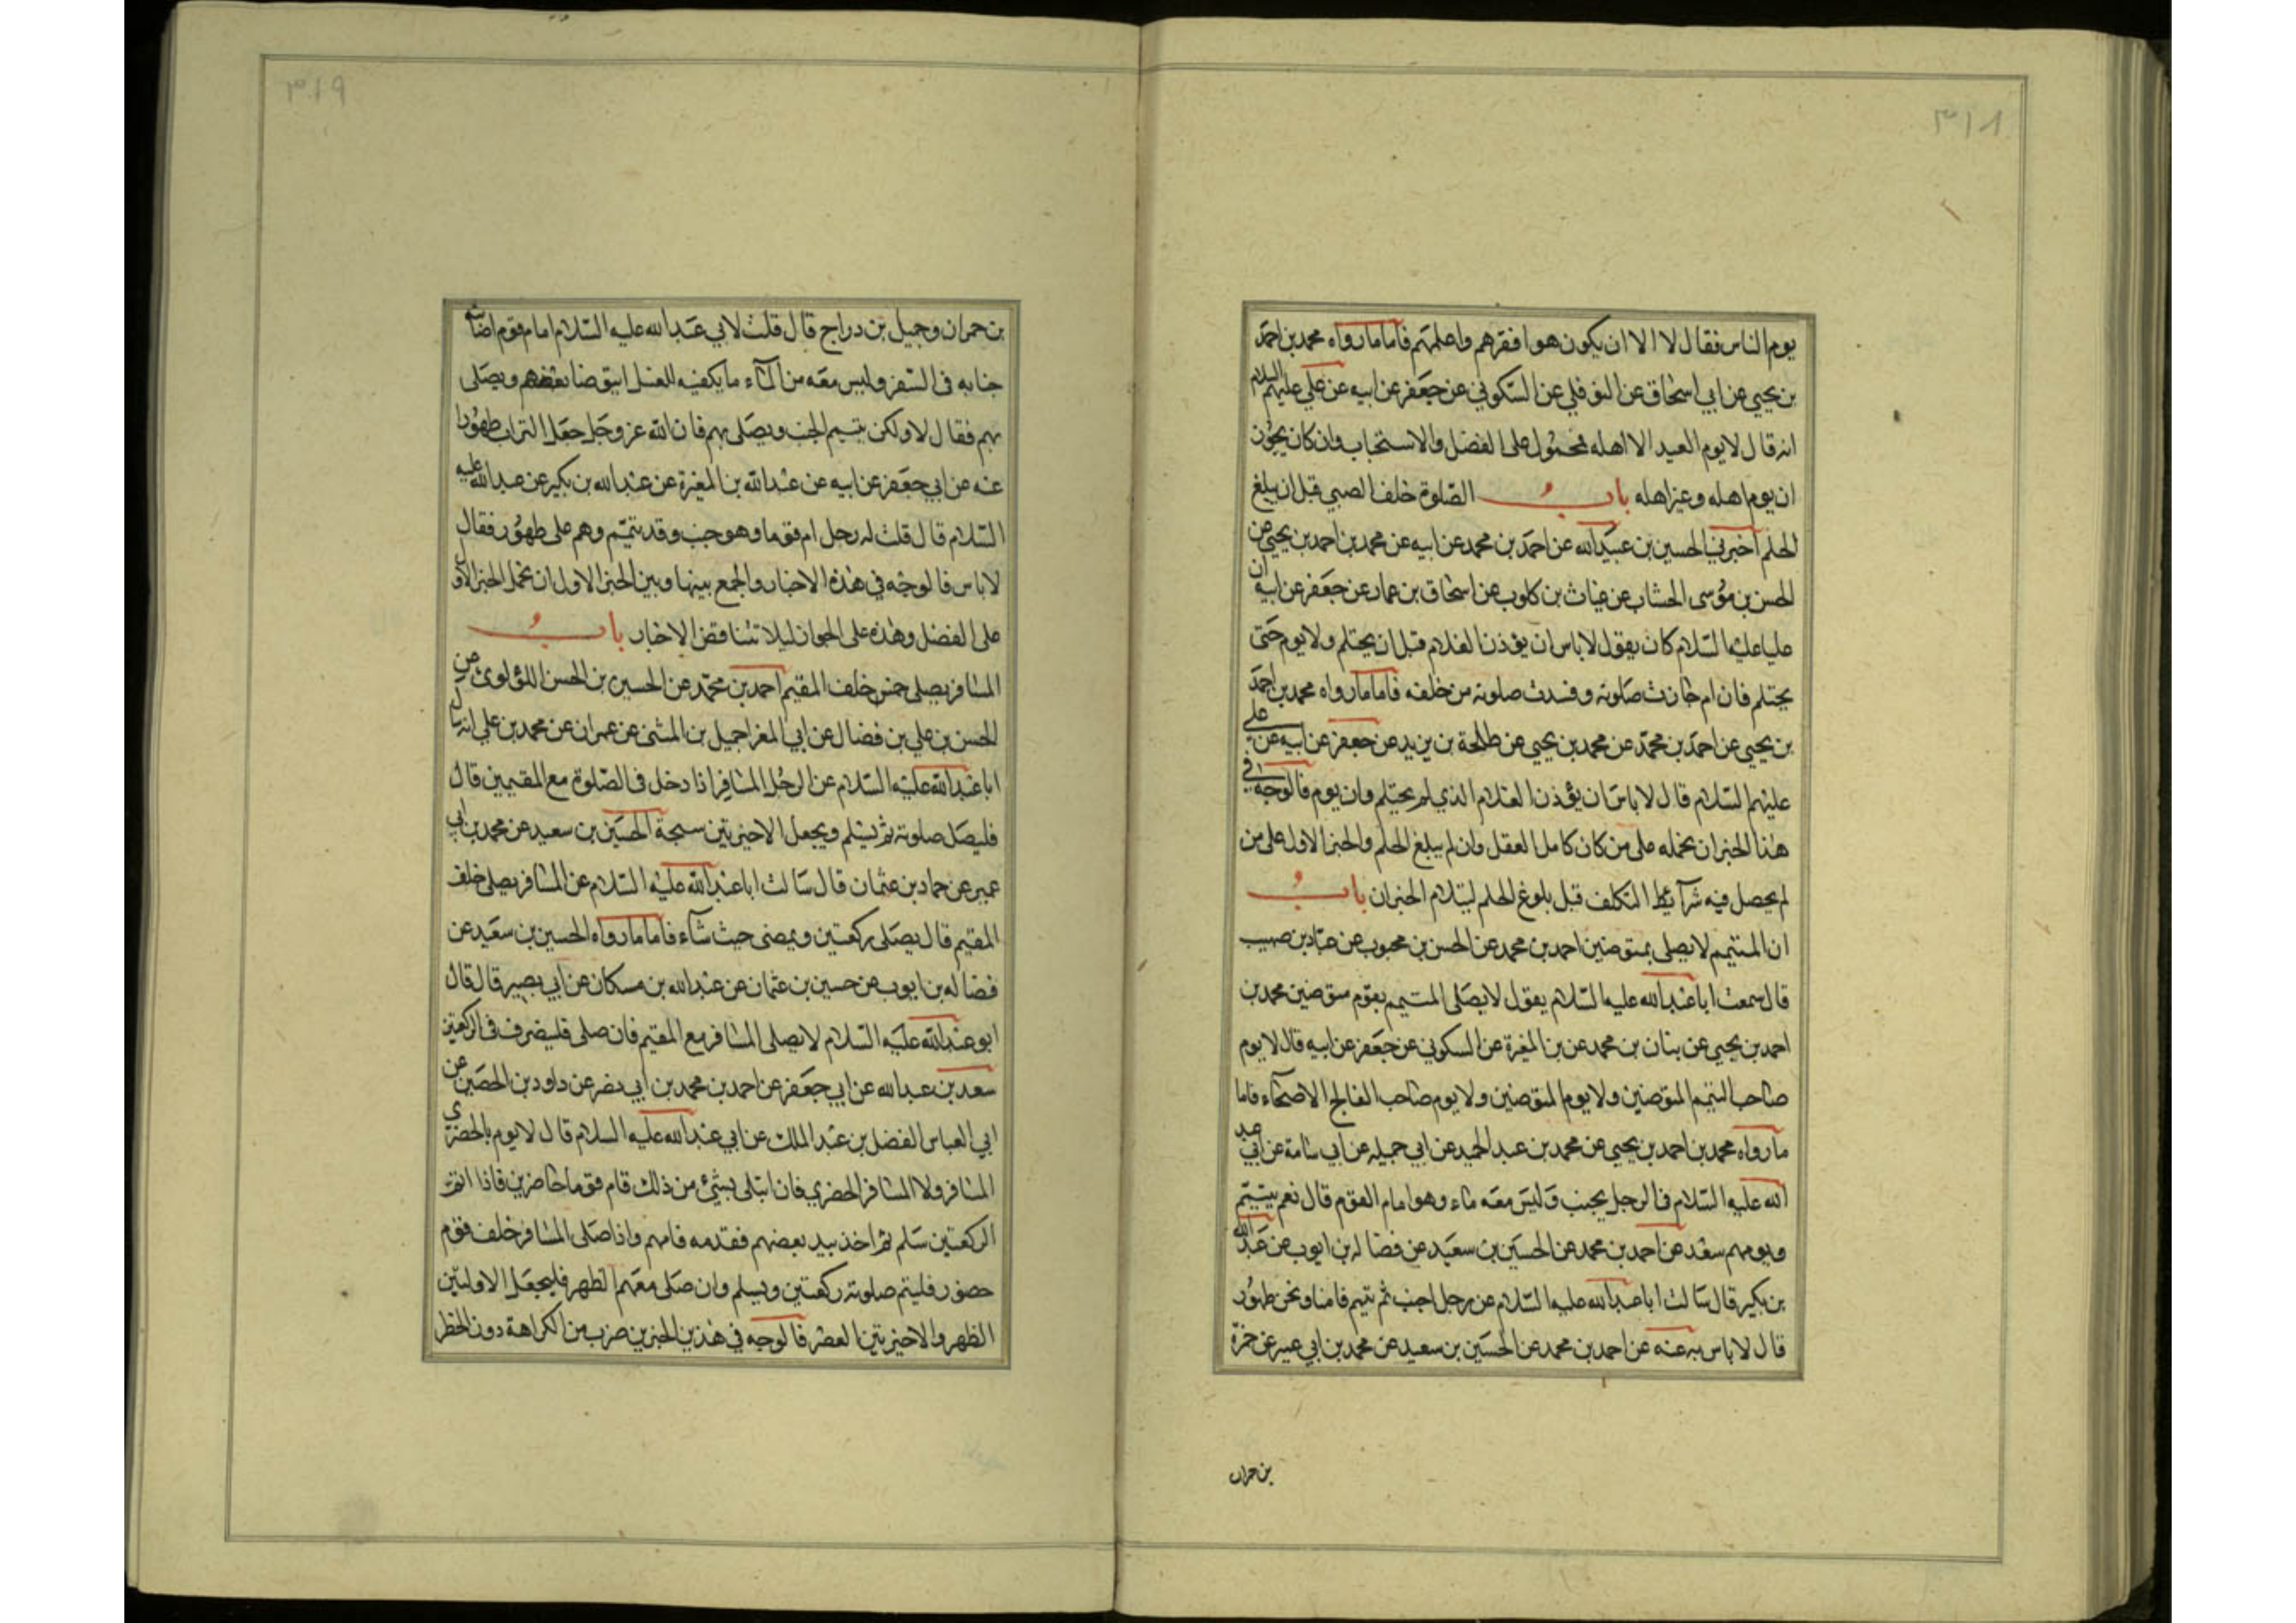 ٣١٨
يوم الناس فقال لا الا ان يكون هو افقرهم واعلمهم فاما ما رواه محمد بن احمد
بن يحيى عن ابي اسحاق عن النوفلي عن السكوني عن جعفر عن ابيه عن علي عليهم السلام
انه قال لا يوم العبد الا اهله فمحمول على الفضل والاستحباب وان كان يجوز
ان يوم اهله وغير اهله باب الصلوة خلف الصبي قبل ان يبلغ
الحلم اخبرني الحسين بن عبيد الله عن احمد بن محمد عن ابيه عن محمد بن احمد بن يحيى عن
الحسن بن موسى الخشاب عن غياث بن كلوب عن اسحاق بن عمار عن جعفر عن ابيه ان
عليا عليه السلام كان يقول لا باس ان يؤذن الغلام قبل ان يحتلم ولا يوم حتى
يحتلم فان ام جازت صلوته وفسدت صلوته من خلفه فاما ما رواه محمد بن احمد
بن يحيى عن احمد بن محمد عن محمد بن يحيى عن طلحة بن زيد عن جعفر عن ابيه عن علي
عليهم السلام قال لا باس ان يؤذن الغلام الذي لم يحتلم وان يوم فالوجه في
هذا الخبر ان نحمله على من كان كامل العقل وان لم يبلغ الحلم والخبر الاول على من
لم يحصل فيه شرآئط التكلف قبل بلوغ الحلم ليتلام الخبران باب
ان المتيمم لا يصلي بمتوضين احمد بن محمد عن الحسن بن محبوب عن عباد بن صهيب
قال سمعت ابا عبد الله عليه السلام يقول لا يصلى المتيمم بقوم متوضين محمد بن
احمد بن يحيى عن بنان بن محمد عن بن المغيرة عن السكوني عن جعفر عن ابيه قال لا يوم
صاحب التيمم المتوضين ولا يوم المتوضين ولا يوم صاحب الفالج الاصحآء فاما
ما رواه محمد بن احمد بن يحيى عن محمد بن عبد الحميد عن ابي جميله عن ابي سامة عن ابي عبد
الله عليه السلام في الرجل يجنب وليس معه ماء وهو امام القوم قال نعم يتيمم
ويومهم سعد عن احمد بن محمد عن الحسين بن سعيد عن فضاله بن ايوب عن عبد الله
بن بكير قال سالت ابا عبد الله عليه السلام عن رجل اجنب ثم تيمم فامنا ونحن طهور
قال لا باس به عنه عن احمد بن محمد عن الحسين بن سعيد عن محمد بن ابي عمير عن حمزة
بن حمران
٣١٩
بن حمران وجميل بن دراج قال قلت لابي عبد الله عليه السلام امام قوم اصابته
جنابه في السفر وليس معه من المآء ما يكفيه للغسل ايتوضا بعضهم ويصلى
بهم فقال لا ولكن يتيمم الجنب ويصلى بهم فان الله عز وجل جعل التراب طهورا
عنه عن ابي جعفر عن ابيه عن عبد الله بن المغيرة عن عبد الله بن بكير عن عبد الله عليه
السلام قال قلت له رجل ام قوما وهو جنب وقد تيمم وهم على طهور فقال
لا باس فالوجه في هذه الاخبار والجمع بينها وبين الخبر الاول ان نحمل الخبر الاول
على الفضل وهذه على الجواز ليلا تتناقض الاخبار باب
المسافر يصلي خلف المقيم احمد بن محمد عن الحسين بن الحسن اللؤلوى عن
الحسن بن علي بن فضال عن ابي المغرا حميل بن المثنى عن عمران عن محمد بن علي انه سال
ابا عبد الله عليه السلام عن الرجل المسافر اذا دخل في الصلوة مع المقيمين قال
فليصل صلوته ثم يسلم ويجعل الاخيرتين سبحة الحسين بن سعيد عن محمد بن ابي
عمير عن حماد بن عثمان قال سالت ابا عبد الله عليه السلام عن المسافر يصلي خلف
المقيم قال يصلى ركعتين ويمضى حيث شآء فاما ما رواه الحسين بن سعيد عن
فضاله بن ايوب عن حسين بن عثمان عن عبد الله بن مسكان عن ابي بصير قال قال
ابو عبد الله عليه السلام لا يصلي المسافر مع المقيم فان صلى فلينصرف في الركعتين
سعد بن عبد الله عن ابي جعفر عن احمد بن محمد بن ابي نصر عن داود بن الحصين عن
ابي العباس الفضل بن عبد الملك عن ابي عبد الله عليه السلام قال لا يوم الحضري
المسافر ولا المسافر الحضري فان ابتلى بشئ من ذلك قام قوما حاضرين فاذا اتم
الركعتين سلم ثم اخذ بيد بعضهم فقدمه فامهم واذا صلى المسافر خلف قوم
حضور فليتم صلوته ركعتين ويسلم وان صلى معهم الظهر فليجعل الاولتين
الظهر والاخيرتين العصر فالوجه في هذين الخبرين ضرب من الكراهة دون الحظر